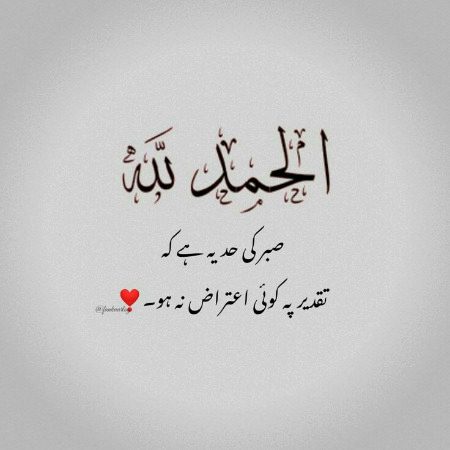 الحمد للہ
صبر کی حد یہ ہے کہ
تقدیر پہ کوئی اعتراض نہ ہو۔ ❤️